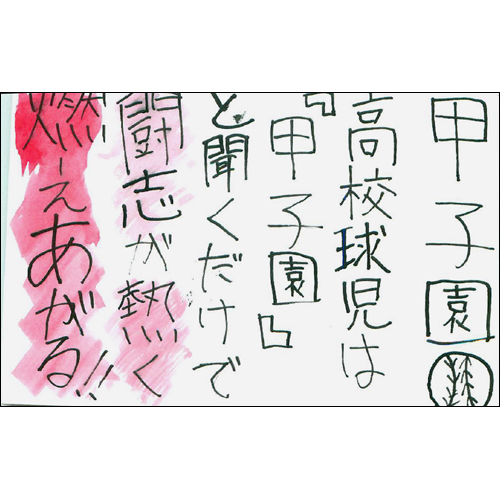 甲子園
高校球児は
『甲子園』
と聞くだけで
闘志が熱く
燃えあがる!!